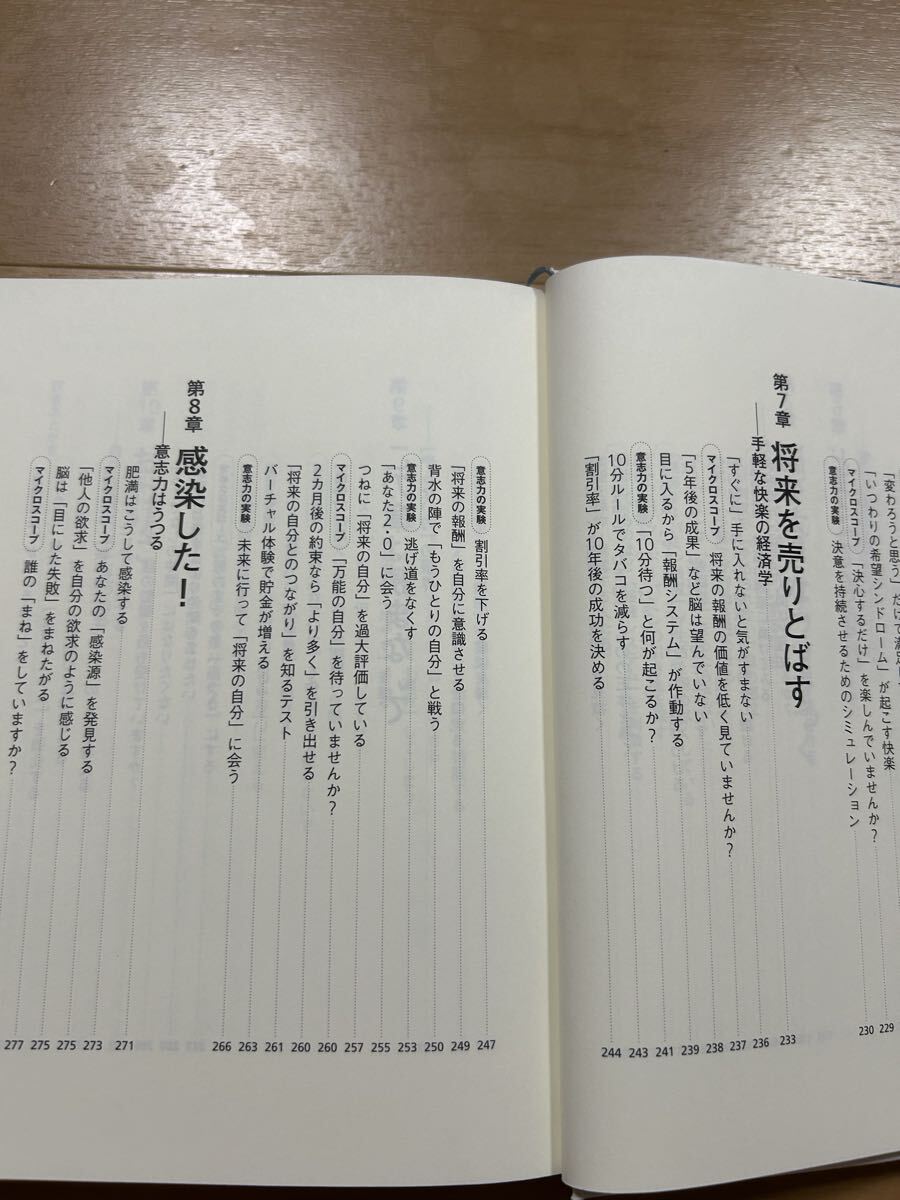 「変わろうと思う」だけで満足し
「いつわりの希望シンドローム」が起こす快楽
マイクロスコープ 「決心するだけ」を楽しんでいませんか? 229
意志力の実験 決意を持続させるためのシミュレーション 230
第7章 将来を売りとばす 233
──手軽な快楽の経済学
「すぐに」手に入れないと気がすまない 236
マイクロスコープ 将来の報酬の価値を低く見ていませんか? 237
「5年後の成果」など脳は望んでいない 238
目に入るから「報酬システム」が作動する 239
意志力の実験 「10分待つ」と何が起こるか? 241
10分ルールでタバコを減らす 243
「割引率」が10年後の成功を決める 244
意志力の実験 割引率を下げる 247
「将来の報酬」を自分に意識させる 249
背水の陣で「もうひとりの自分」と戦う 250
意志力の実験 逃げ道をなくす 253
「あなた2.0」に会う 255
つねに「将来の自分」を過大評価している 257
マイクロスコープ 「万能の自分」を待っていませんか? 260
2カ月後の約束なら「より多く」を引き出せる 260
「将来の自分とのつながり」を知るテスト 261
バーチャル体験で貯金が増える 263
意志力の実験 未来に行って「将来の自分」に会う 266
第8章 感染した!
──意志力はうつる
肥満はこうして感染する 271
マイクロスコープ あなたの「感染源」を発見する 273
「他人の欲求」を自分の欲求のように感じる 275
脳は「目にした失敗」をまねたがる 275
マイクロスコープ 誰の「まね」をしていますか? 277